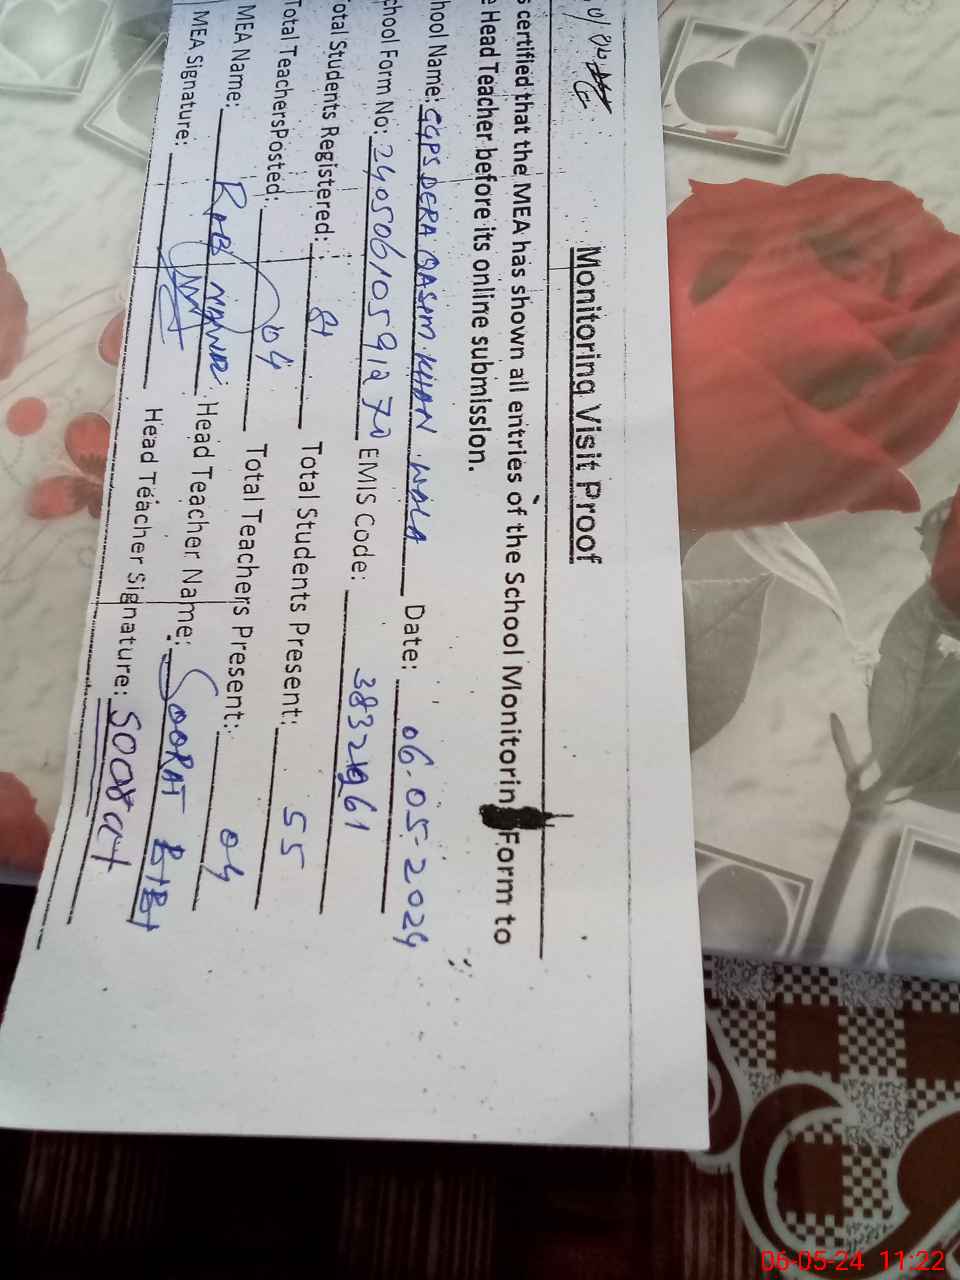 Monitoring Visit Proof
s certified that the MEA has shown all entries of the School Monitorin Form to
e Head Teacher before its online submission.
hool Name: GGPS DERA QASIM KHAN WALA Date: 06-05-2024
chool Form No: EMIS Code:
otal Students Registered: 81 Total Students Present: 55
Total TeachersPosted: 04 Total Teachers Present: 04
MEA Name: RAB NAWAZ Head Teacher Name: SOORAT BIBI
MEA Signature: Head Teacher Signature: Soorat
06-05-24 11:22